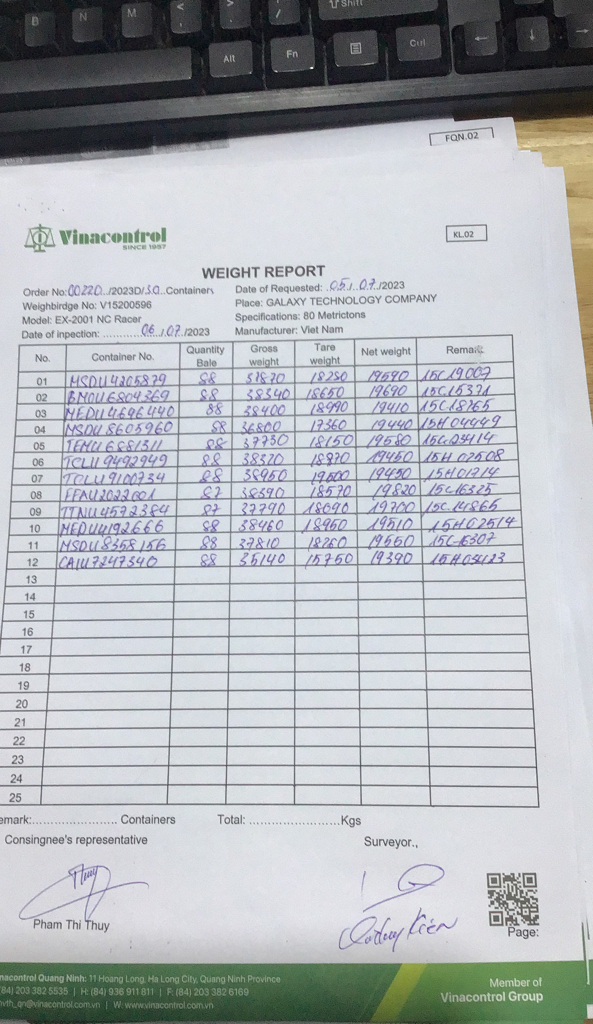 B N M < > ? ⇧ Shift
Alt Fn Ctrl ← ↓ →
FQN.02
Vinacontrol
SINCE 1957
KL.02
WEIGHT REPORT
Order No: 00220 /2023D/30 Containers Date of Requested: 05/07/2023
Weighbirdge No: V15200596 Place: GALAXY TECHNOLOGY COMPANY
Model: EX-2001 NC Racer Specifications: 80 Metrictons
Date of inpection: ............ 06/07/2023 Manufacturer: Viet Nam
No. Container No. Quantity Bale Gross weight Tare weight Net weight Remark
01 MSDU4205879 88 37870 18280 19590 15C19007
02 BMOU6804369 88 38340 18650 19690 15C15371
03 MEDU4696440 88 38400 18990 19410 15C18765
04 MSDU8605960 88 36800 17360 19440 15H04449
05 TEMU6881311 88 37730 18150 19580 15C23414
06 TCLU9492949 88 38320 18870 19450 15H02508
07 TCLU9100734 88 38950 19500 19450 15H01214
08 FFAU2022001 87 38390 18570 19820 15C16325
09 TTNU4572384 87 37790 18090 19700 15C14865
10 MEDU4192666 88 38460 18950 19510 15H02514
11 MSDU8358156 88 37810 18260 19550
12 CAIU7247340 88 35140 15750 19390 15H03423
13
14
15
16
17
18
19
20
21
22
23
24
25
emark:..................... Containers Total: ......................Kgs
Consingnee's representative Surveyor.,
Thuy
Pham Thi Thuy
Page:
nacontrol Quang Ninh: 11 Hoang Long, Ha Long City, Quang Ninh Province
84) 203 382 5535 | H: (84) 936 911 811 | F: (84) 203 382 6169
nvth_qn@vinacontrol.com.vn | W: www.vinacontrol.com.vn
Member of
Vinacontrol Group